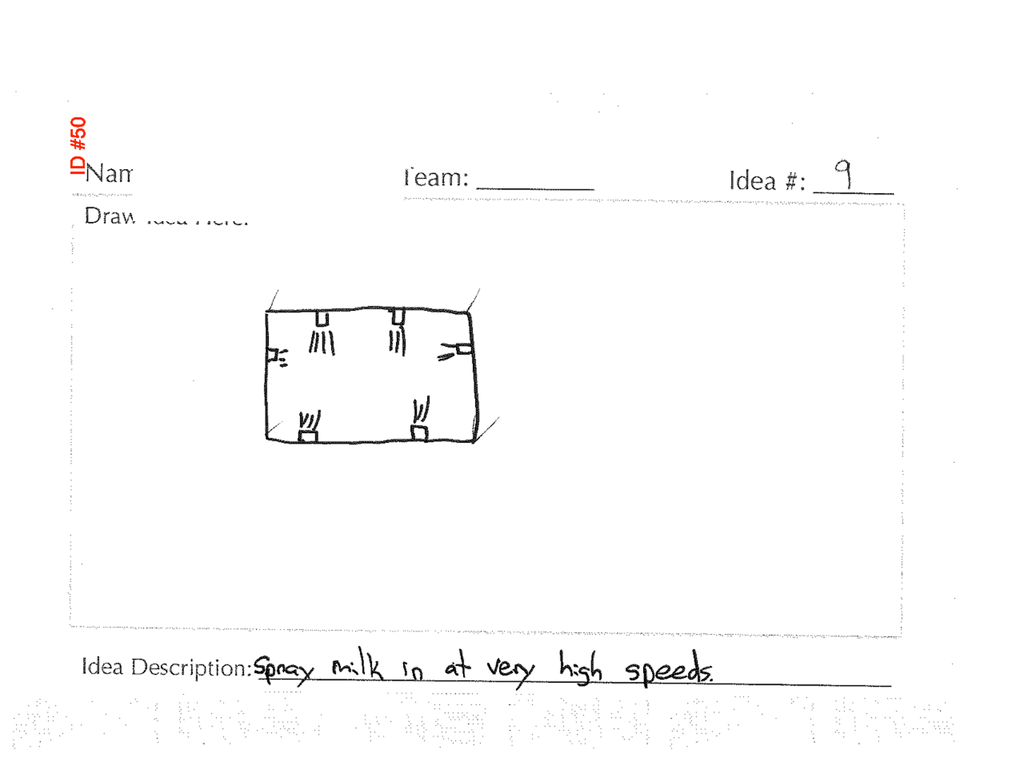 ID #50
Team:
Idea #: 9
Idea Description: Spray milk in at very high speeds.